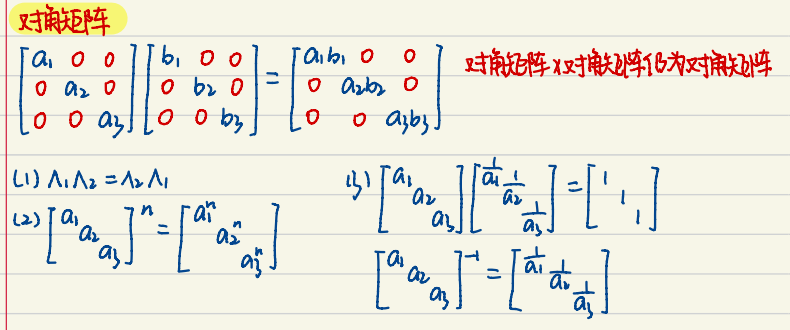 对角矩阵
[a₁ 0 0; 0 a₂ 0; 0 0 a₃] [b₁ 0 0; 0 b₂ 0; 0 0 b₃] = [a₁b₁ 0 0; 0 a₂b₂ 0; 0 0 a₃b₃] 对角矩阵×对角矩阵仍为对角矩阵
(1) Λ₁Λ₂ = Λ₂Λ₁
(2) [a₁ a₂ a₃]ⁿ = [a₁ⁿ a₂ⁿ a₃ⁿ]
(3) [a₁ a₂ a₃] [1/a₁ 1/a₂ 1/a₃] = [1 1 1]
[a₁ a₂ a₃]⁻¹ = [1/a₁ 1/a₂ 1/a₃]